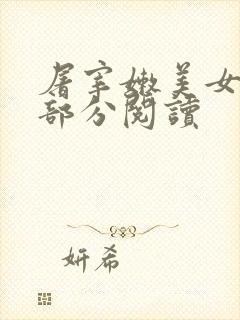 屠宰嫩美女
部分閱讀
妍希